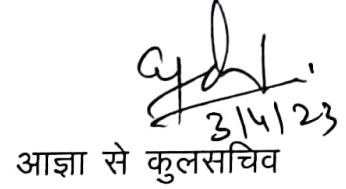 3/4/23
आज्ञा से कुलसचिव